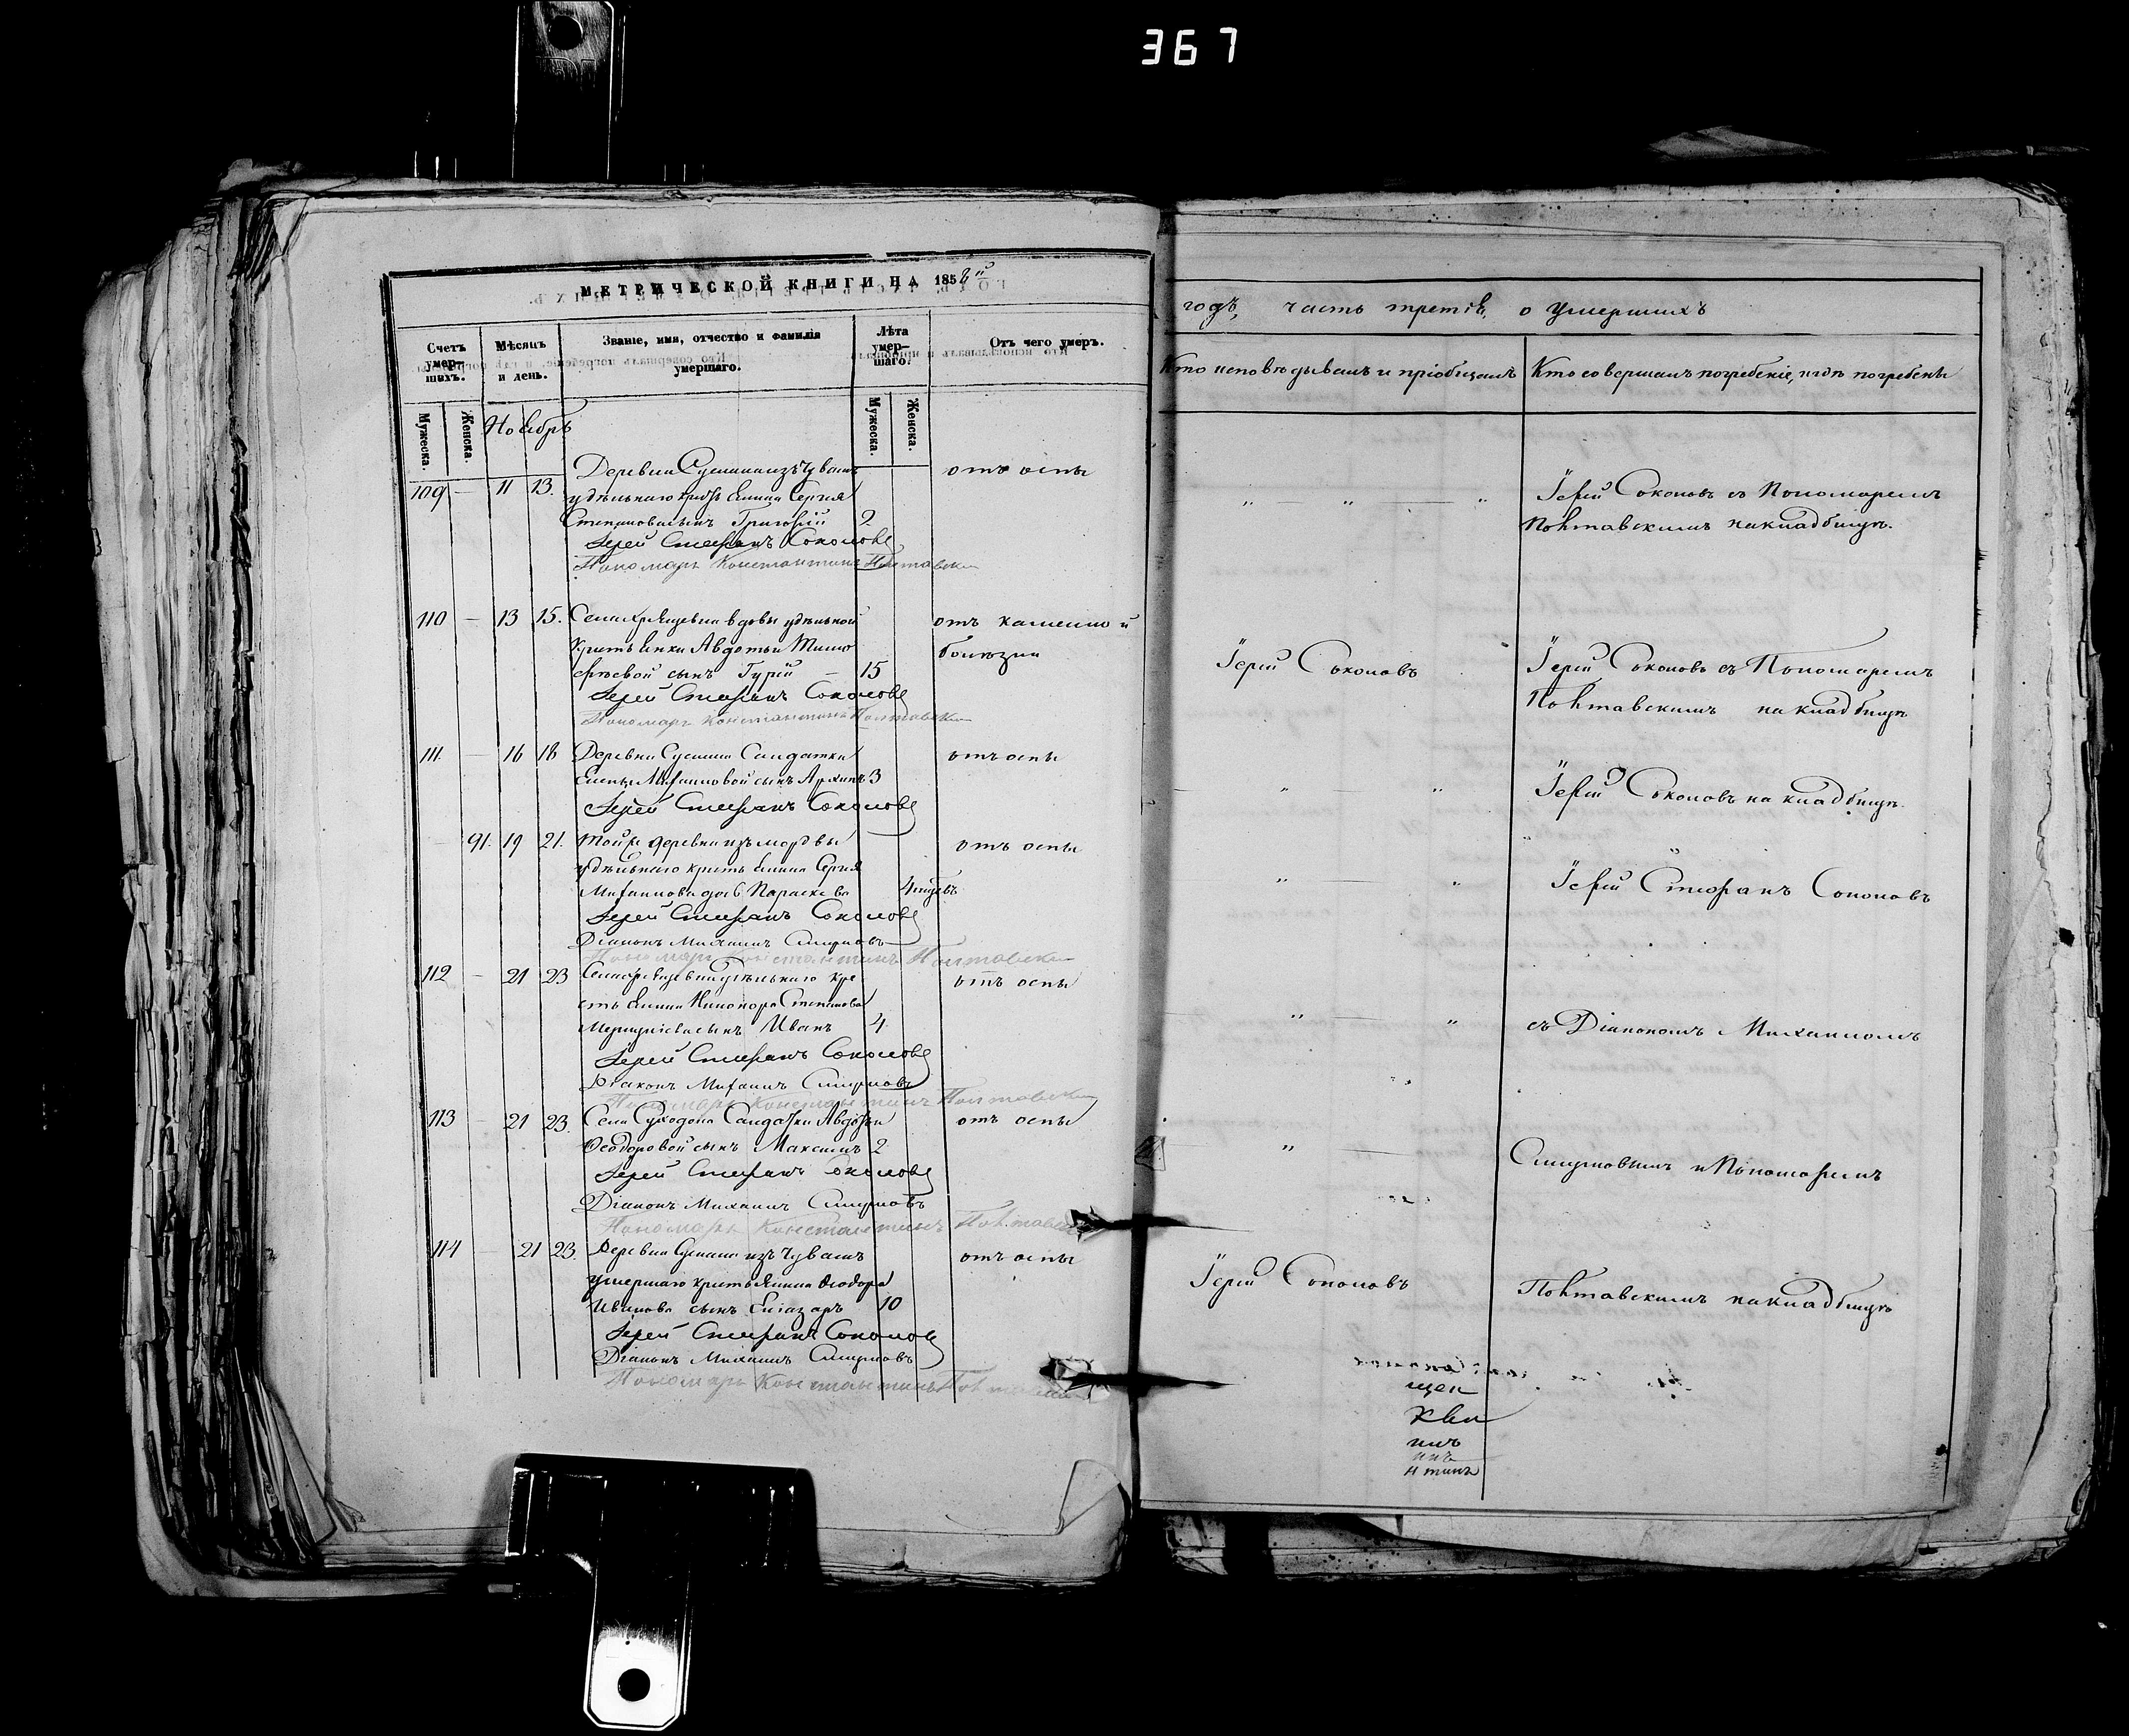 367
МЕТРИЧЕСКОЙ КНИГИ НА 1858й
Счетъ умер-шихъ.
Мѣсяцъ и день.
Званіе, имя, отчество и фамилія умершаго.
Лѣта умер-шаго.
Отъ чего умеръ.
Мужеска.
Женска.
Ноябрь
Мужеска.
Женска.
Деревни изъ Чувашъ
отъ оспы
109 — 11 13. удѣльнаго Сергія
Степанова сынъ Григорій 2
Іерей Стефанъ Соколовъ
Пономарь Константинъ Полтавскій
110 — 13 15. Села вдовы удѣльной
отъ каменной
Авдотьи Тимо
болѣзни
фѣевой сынъ Гурій — 15
Іерей Стефанъ Соколовъ
Пономарь Константинъ Полтавскій
111. — 16 18 Деревни Солдатки
отъ оспы
Елены Михаиловой сынъ Архипъ 3
Іерей Стефанъ Соколовъ
91. 19 21. Той же деревни изъ мордвы
отъ оспы
удѣльнаго Сергія
Михаилова дочь Параскева 4
Іерей Стефанъ Соколовъ
Діаконъ Михаилъ Смирновъ
Пономарь Константинъ Полтавскій
112 — 21 23 удѣльнаго кре
отъ оспы
Степанова
сынъ Иванъ 4.
Іерей Стефанъ Соколовъ
Діаконъ Михаилъ Смирновъ
Пономарь Константинъ Полтавскій
113 — 21 23. Села Суходола Солдатки Авдотьи
отъ оспы
Ѳеодоровой сынъ Максимъ 2
Іерей Стефанъ Соколовъ
Діаконъ Михаилъ Смирновъ
Пономарь Константинъ Полтавскій
114 — 21 23. Деревни изъ Чувашъ
отъ оспы
умершаго крестьянина Ѳеодора
Иванова сынъ Елiазаръ 10
Іерей Стефанъ Соколовъ
Діаконъ Михаилъ Смирновъ
Пономарь Константинъ Полтавскій
годъ, часть третія, о умершихъ
Кто исповѣдывалъ и пріобщалъ
Кто совершалъ погребеніе, и гдѣ погребены
Іерей Соколовъ съ Пономаремъ
Полтавскимъ на кладбищѣ.
Іерей Соколовъ
Іерей Соколовъ съ Пономаремъ
Полтавскимъ на кладбищѣ
Іерей Соколовъ на кладбищѣ.
Іерей Стефанъ Соколовъ
съ Діакономъ Михаиломъ
Смирновымъ и Пономаремъ
Іерей Соколовъ
Полтавскимъ на кладбищѣ